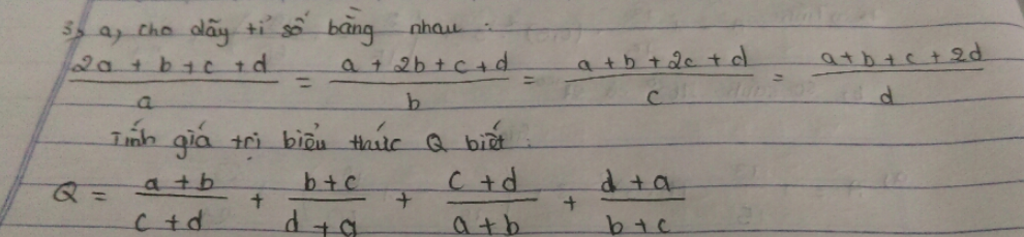 3, a, cho dãy tỉ số bằng nhau :
2a + b + c + d / a = a + 2b + c + d / b = a + b + 2c + d / c = a + b + c + 2d / d
Tính giá trị biểu thức Q biết :
Q = a + b / c + d + b + c / d + a + c + d / a + b + d + a / b + c